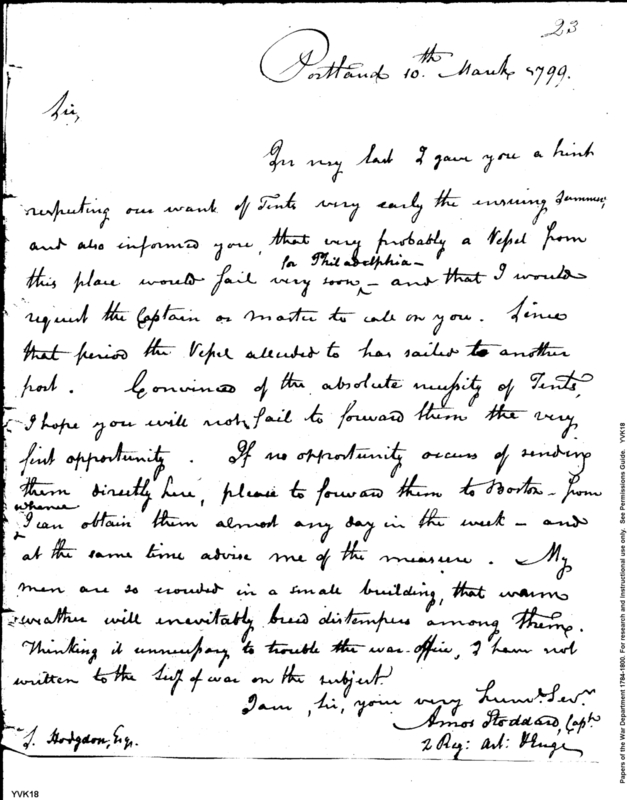 23
Portland 10.th March 1799.
Sir,
In my last I gave you a hint
respecting our want of Tents very early the ensuing summer,
and also informed you, that very probably a Vessel from
for Philadelphia –
this place would sail very soon, – and that I would
request the Captain or Master to call on you. Since
that period the Vessel alluded to has sailed to another
port. Convinced of the absolute necessity of Tents,
I hope you will not fail to forward them the very
first opportunity. If no opportunity occurs of sending
them directly here, please to forward them to Boston – from
whence
I can obtain them almost any day in the week – and
at the same time advise me of the measure. My
men are so crowded in a small building, that warm
weather will inevitably breed distempers among them.
Thinking it unnecessary to trouble the war-office, I have not
written to the Secy of war on the subject
I am, Sir, your very Humb. Serv.
Amos Stoddard, Capt.
2 Reg: Art: & Eng
S. Hodgdon, Esq.
YVK18
Papers of the War Department 1784-1800. For research and instructional use only. See Permissions Guide. YVK18